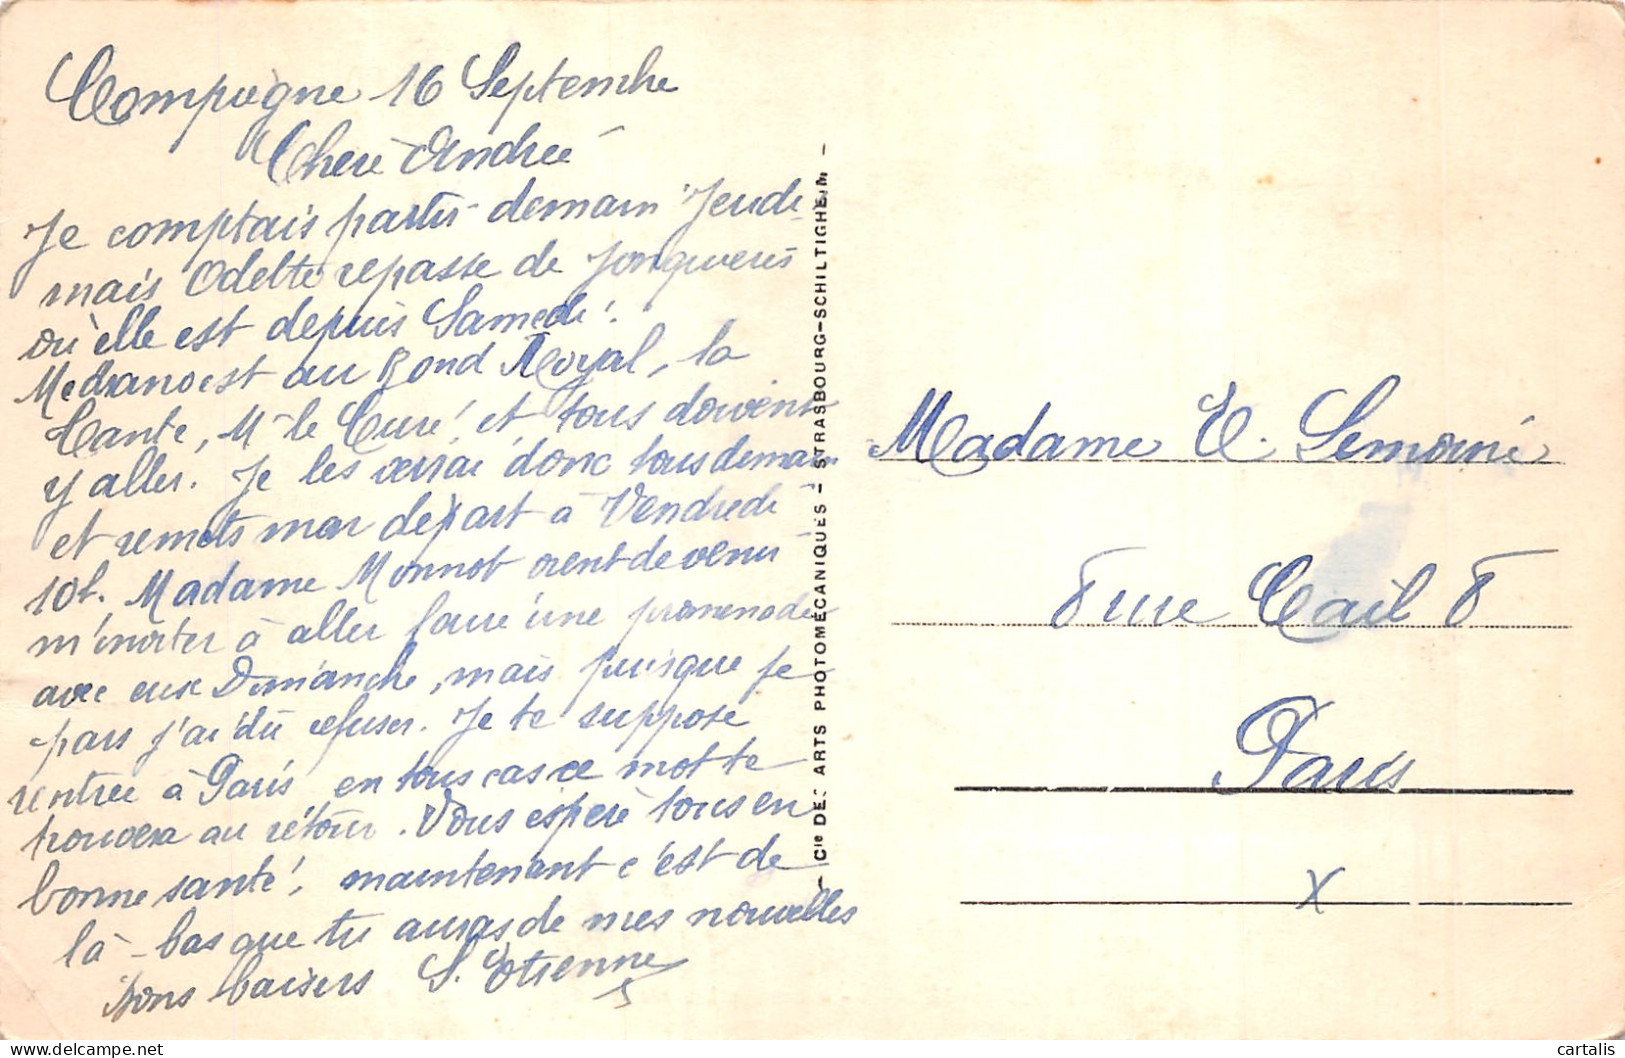 Compiègne 16 Septembre
Chère Andrée
Je comptais partir demain Jeudi
mais Odette repasse de Jonquières
où elle est depuis Samedi.
Medrano est au Rond Royal, la
Tante, Mr le Curé, et tous doivent
y aller. Je les verrai donc tous demain
et remets mon départ à Vendredi
10h. Madame Monnot vient de venir
m'inviter à aller faire une promenade
avec eux Dimanche, mais puisque je
pars j'ai dû refuser. Je te suppose
rentrée à Paris en tous cas ce mot te
trouvera au retour. Vous espère tous en
bonne santé, maintenant c'est de
là-bas que tu auras de mes nouvelles
Bons baisers S. Etienne
- Cie DES ARTS PHOTOMÉCANIQUES - STRASBOURG-SCHILTIGHEIM -
Madame E. Lemoine
8 rue Cail 8
Paris
X
cartalis